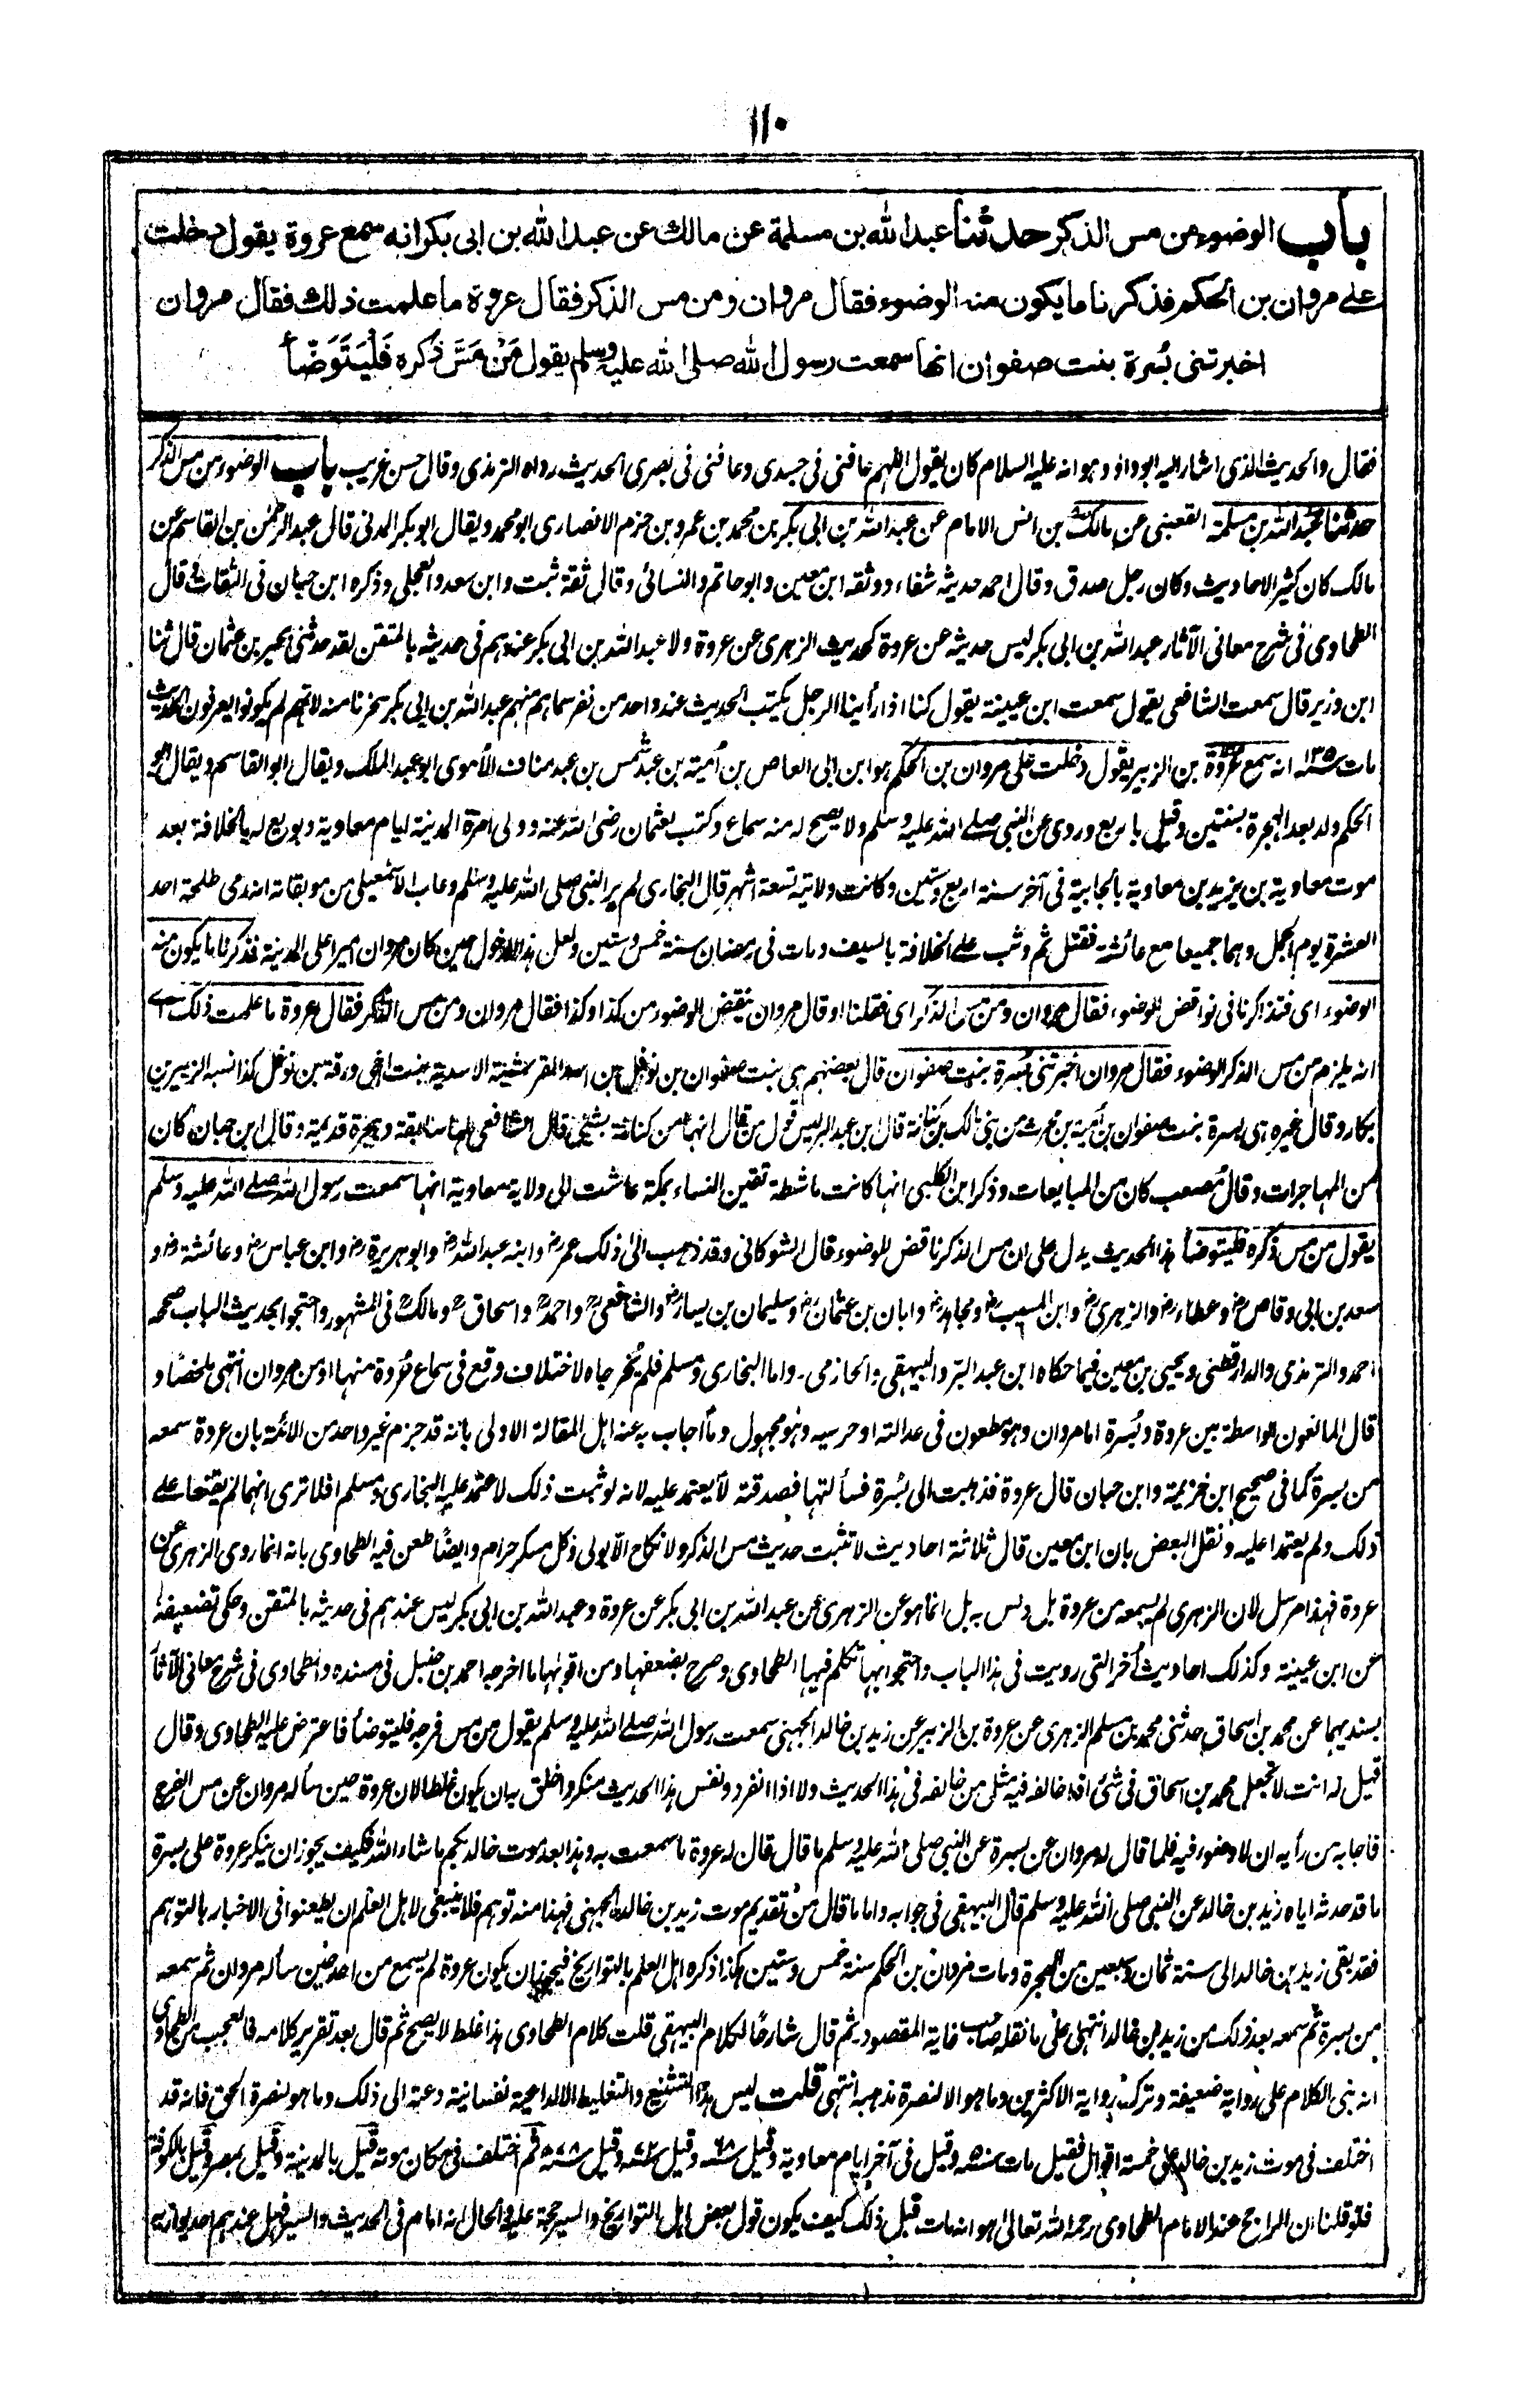 ١١٠
باب الوضوء من مس الذكر حدثنا عبد الله بن مسلمة عن مالك عن عبد الله بن ابى بكر انه سمع عروة يقول دخلت
على مروان بن الحكم فذكرنا ما يكون منه الوضوء فقال مروان ومن مس الذكر فقال عروة ما علمت ذلك فقال مروان
اخبرتنى بُسرة بنت صفوان انها سمعت رسول الله صلى الله عليه وسلم يقول مَنْ مَسَّ ذَكره فَلْيَتَوَضَّأ
فقال والحديث الذى اشار اليه ابو داؤد وهو انه عليه السلام كان يقول اللهم عافنى فى جسدى وعافنى فى بصرى الحديث رواه الترمذى وقال حسن غريب باب الوضوء من مس الذكر
حدثنا عبد الله بن مسلمة القعنبى عن مالك بن انس الامام عن عبد الله بن ابى بكر بن محمد بن عمرو بن حزم الانصارى ابو محمد ويقال ابو بكر المدنى قال عبد الرحمن بن القاسم عن
مالك كان كثير الاحاديث وكان رجل صدق وقال احمد حديثه شفاء ووثقه ابن معين وابو حاتم والنسائى وقال ثقة ثبت وابن سعد والعجلى وذكره ابن حبان فى الثقات وقال
الطحاوى فى شرح معانى الآثار عبد الله بن ابى بكر ليس حديثه عن عروة كحديث الزهرى عن عروة ولا عبد الله بن ابى بكر عندهم فى حديثه بالمتقن لقد حدثنى يحيى بن عثمان قال ثنا
ابن وزير قال سمعت الشافعى يقول سمعت ابن عيينة يقول كنا اذا رأينا الرجل يكتب الحديث عند واحد من نفر سماهم منهم عبد الله بن ابى بكر سخرنا منه لانهم لم يكونوا يعرفون الحديث
مات سنة ١٣٥ انه سمع عروة بن الزبير يقول دخلت على مروان بن الحكم هو ابن ابى العاص بن أمية بن عبد شمس بن عبد مناف الأموى ابو عبد الملك ويقال ابو القاسم ويقال ابو
الحكم ولد بعد الهجرة بسنتين وقيل باربع وروى عن النبى صلے الله عليه وسلم ولا يصح له منه سماع وكتب لعثمان رضى الله عنه وولى امرة المدينة ايام معاوية وبويع له بالخلافة بعد
موت معاوية بن يزيد بن معاوية بالجابية فى آخر سنة اربع وستين وكانت ولايته تسعة اشهر قال البخارى لم ير النبى صلى الله عليه وسلم وعاب الاسمعيلى من موبقاته انه رمى طلحة احد
العشرة يوم الجمل وهما جميعا مع عائشة فقتل ثم وثب على الخلافة بالسيف ومات فى رمضان سنة خمس وستين ولعل هذا الدخول حين كان مروان اميرا على المدينة فذكرنا ما يكون منه
الوضوء اى فتذاكرنا فى نواقض الوضوء فقال مروان ومن مس الذكر اى فقلنا او قال مروان ينقض الوضوء من كذا وكذا فقال مروان ومن مس الذكر فقال عروة ما علمت ذلك اى
انه يلزم من مس الذكر الوضوء فقال مروان اخبرتنى بُسرة بنت صفوان قال بعضهم هى بنت صفوان بن نوفل بن اسد القرشية الاسدية بنت اخى ورقة بن نوفل كذا نسبه الزبير بن
بكار وقال غيره هى بسرة بنت صفوان بن أمية بن محرث من بنى مالك بن كنانة قال ابن عبد البر ليس قول من قال انها من كنانة بشئ قال الشافعى لها سابقة وهجرة قديمة وقال ابن حبان كان
من المهاجرات وقال مصعب كان من المبايعات وذكر ابن الكلبى انها كانت ماشطة تقين النساء بمكة عاشت الى ولاية معاوية انها سمعت رسول الله صلے الله عليه وسلم
يقول من مس ذكره فليتوضأ هذا الحديث يدل على ان مس الذكر ناقض للوضوء قال الشوكانى وقد ذهب الى ذلك عمر رض وابنه عبد الله رض وابو هريرة رض وابن عباس رض وعائشة رض و
سعد بن ابى وقاص رض وعطاء رض والزهرى رض وابن المسيب رض ومجاهد رض وابان بن عثمان رض وسليمان بن يسار رض والشافعى رح واحمد رح واسحاق رح ومالك رح فى المشهور واحتجوا بحديث الباب صححه
احمد والترمذى والدارقطنى ويحيى بن معين فيما حكاه ابن عبد البر والبيهقى والحازمى ۔ واما البخارى ومسلم فلم يخرجاه لاختلاف وقع فى سماع عروة منها او من مروان انتهى ملخصًا و
قال المانعون الواسطة بين عروة وبُسرة اما مروان وهو مطعون فى عدالته او حرسيه وهو مجهول وما اجاب به عنه اهل المقالة الاولى بانه قد جزم غير واحد من الائمة بان عروة سمعه
من بسرة كما فى صحيح ابن خزيمة وابن حبان قال عروة فذهبت الى بُسرة فسألتها فصدقته لا يعتمد عليه لانه لو ثبت ذلك لاعتمد عليه البخارى ومسلم افلا ترى انهما لم يقنعا على
ذلك ولم يعتمدا عليه ونقل البعض بان ابن معين قال ثلاثة احاديث لا تثبت حديث مس الذكر ولا نكاح الا بولى وكل مسكر حرام وايضًا طعن فيه الطحاوى بانه انما روى الزهرى عن
عروة فهذا مرسل لان الزهرى لم يسمعه من عروة بل دلس به بل انما هو عن الزهرى عن عبد الله بن ابى بكر عن عروة وعبد الله بن ابى بكر ليس عندهم فى حديثه بالمتقن وحكى تضعيفه
عن ابن عيينة وكذلك احاديث أخر التى رويت فى هذا الباب واحتجوا بها تكلم فيها الطحاوى وصرح بضعفها ومن اقويها ما اخرجه احمد بن حنبل فى مسنده والطحاوى فى شرح معانى الآثار
بسنديهما عن محمد بن اسحاق حدثنى محمد بن مسلم الزهرى عن عروة بن الزبير عن زيد بن خالد الجهنى سمعت رسول الله صلے الله عليه وسلم يقول من مس فرجه فليتوضأ فاعترض عليه الطحاوى وقال
قيل له انت لا تجعل محمد بن اسحاق فى شئ اذا خالفه فيه مثل من خالفه فى هذا الحديث ولا اذا انفرد ونفس هذا الحديث منكر واخلق به ان يكون غلطا لان عروة حين سأله مروان عن مس الفرج
فاجابه من رأيه ان لا وضوء فيه فلما قال له مروان عن بسرة عن النبى صلى الله عليه وسلم ما قال قال له عروة ما سمعت به وهذا بعد موت خالد بكم ما شاء الله فكيف يجوز ان ينكر عروة على بسرة
ما قد حدثه اياه زيد بن خالد عن النبى صلى الله عليه وسلم قال البيهقى فى جوابه واما ما قال من تقديم موت زيد بن خالد الجهنى فهذا منه توهم فلا ينبغى لاهل العلم ان يطعنوا فى الاخبار بالتوهم
فقد بقى زيد بن خالد الى سنة ثمان وسبعين من الهجرة ومات مروان بن الحكم سنة خمس وستين هكذا ذكره اهل العلم بالتواريخ فيجوز ان يكون عروة لم يسمع من احد حين سأله مروان ثم سمعه
من بسرة ثم سمعه بعد ذلك من زيد بن خالد انتهى على ما نقله صاحب غاية المقصود ۔ ثم قال شارحًا لكلام البيهقى قلت كلام الطحاوى هذا غلط لا يصح ثم قال بعد تقرير كلامه فالعجب من الطحاوى
انه بنى الكلام على رواية ضعيفة وترك رواية الاكثرين وما هو الا لنصرة مذهبه انتهى قلت ليس هذا التشنيع والتغليط الا لداعية نفسانية دعته الى ذلك وما هو لنصرة الحق فانه قد
اختلف فى موت زيد بن خالد على خمسة اقوال فقيل مات سنة ٥٠ وقيل فى آخر ايام معاوية وقيل سنة ٦٨ وقيل سنة ٧٢ وقيل سنة ٧٨ ثم اختلف فى مكان موته قيل بالمدينة وقيل بمصر وقيل بالكوفة
فلو قلنا ان الراجح عند الامام الطحاوى رحمه الله تعالى هو انه مات قبل ذلك كيف يكون قول بعض اهل التواريخ والسير حجة عليه والحال انه امام فى الحديث والسير فهل عندهم احد يوازيه